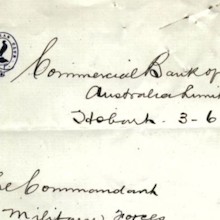 Commercial Bank of
Australia Limi
Hobart. 3-6
he Commandant
Military Forces